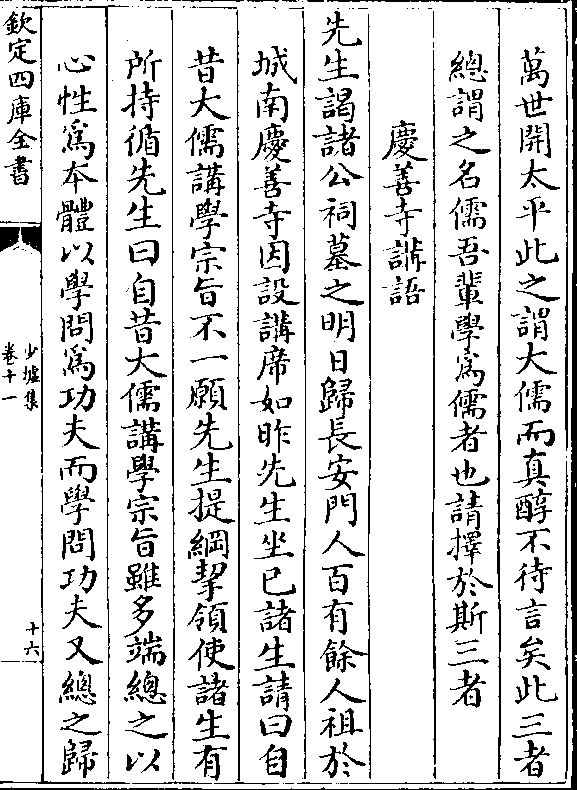 萬世開太平此之謂大儒而真醇不待言矣此三者
總謂之名儒吾輩學爲儒者也請擇於斯三者
慶善寺講語
先生謁諸公祠墓之明日歸長安門人百有餘人祖於
城南慶善寺因設講席如昨先生坐已諸生請曰自
昔大儒講學宗旨不一願先生提綱挈領使諸生有
所持循先生曰自昔大儒講學宗旨雖多端總之以
心性爲本體以學問爲功夫而學問功夫又總之歸
欽定四庫全書
少墟集
卷十一
十六